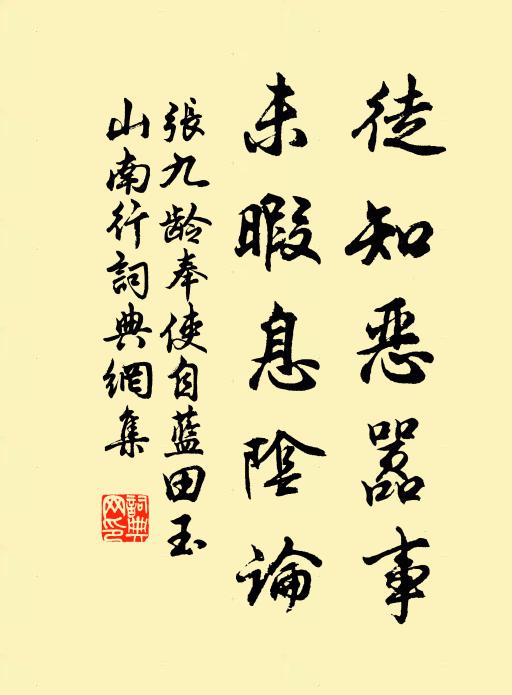 徒知恶嚣事
未暇息陰論
張九龄奉使自藍田玉
山南行詞典網集
詞典
网印